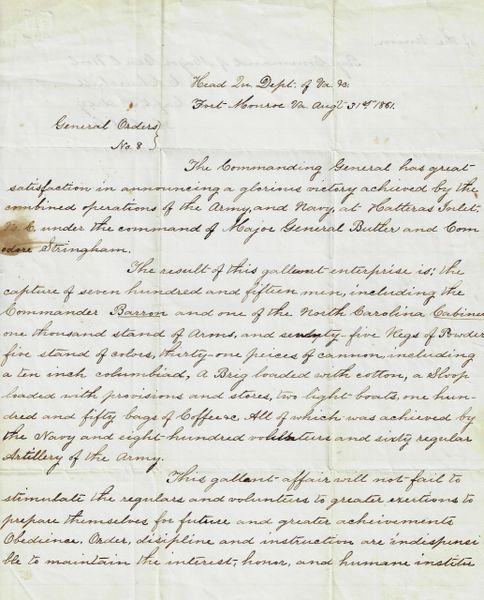 Head Qu. Dept. of Va. &c.
Fort Monroe Va. Augt 31st 1861.
General Orders
No. 8
The Commanding General has great
satisfaction in announcing a glorious victory achieved by the
combined operations of the Army, and Navy, at Hatteras Inlet.
N. C. under the command of Major General Butler and Com
odore Stringham.
The result of this gallant enterprise is; the
capture of seven hundred and fifteen men, including the
Commander Barron and one of the North Carolina Cabinet
one thousand stand of Arms, and seventy-five Kegs of Powder
five stand of colors, thirty-one peices of cannon, including
a ten inch columbiad, A Brig loaded with cotton, a Sloop
loaded with provisions and stores, two light boats, one hun
dred and fifty bags of Coffee &c. All of which was achieved by
the Navy and eight hundred volunteers and sixty regular
Artillery of the Army.
This gallant affair will not fail to
stimulate the regulars and volunteers to greater exertions to
prepare themselves for future and greater acheivements
Obedience, Order, discipline and instruction are indispensi
ble to maintain the interest, honor, and humane institu